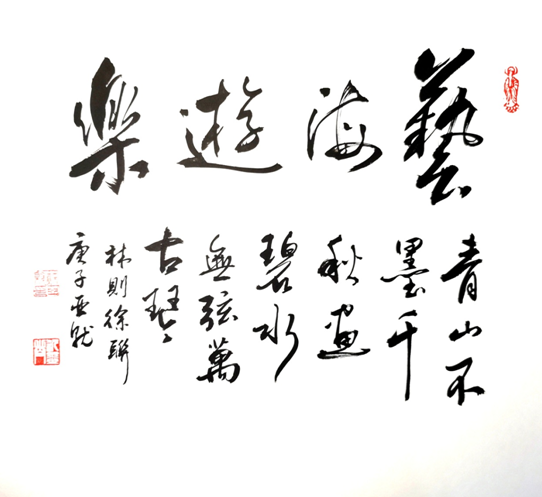 藝海遊樂
青山不
墨千
秋畫
碧水
無弦萬
古琴
林則徐聯
庚子